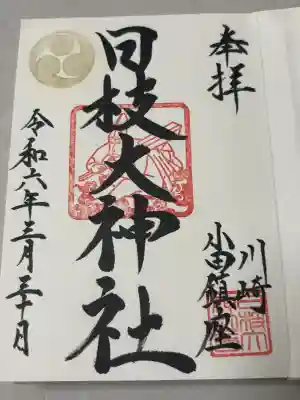 奉拝
川崎
小田鎮座
日枝大神社
令和六年三月三十日